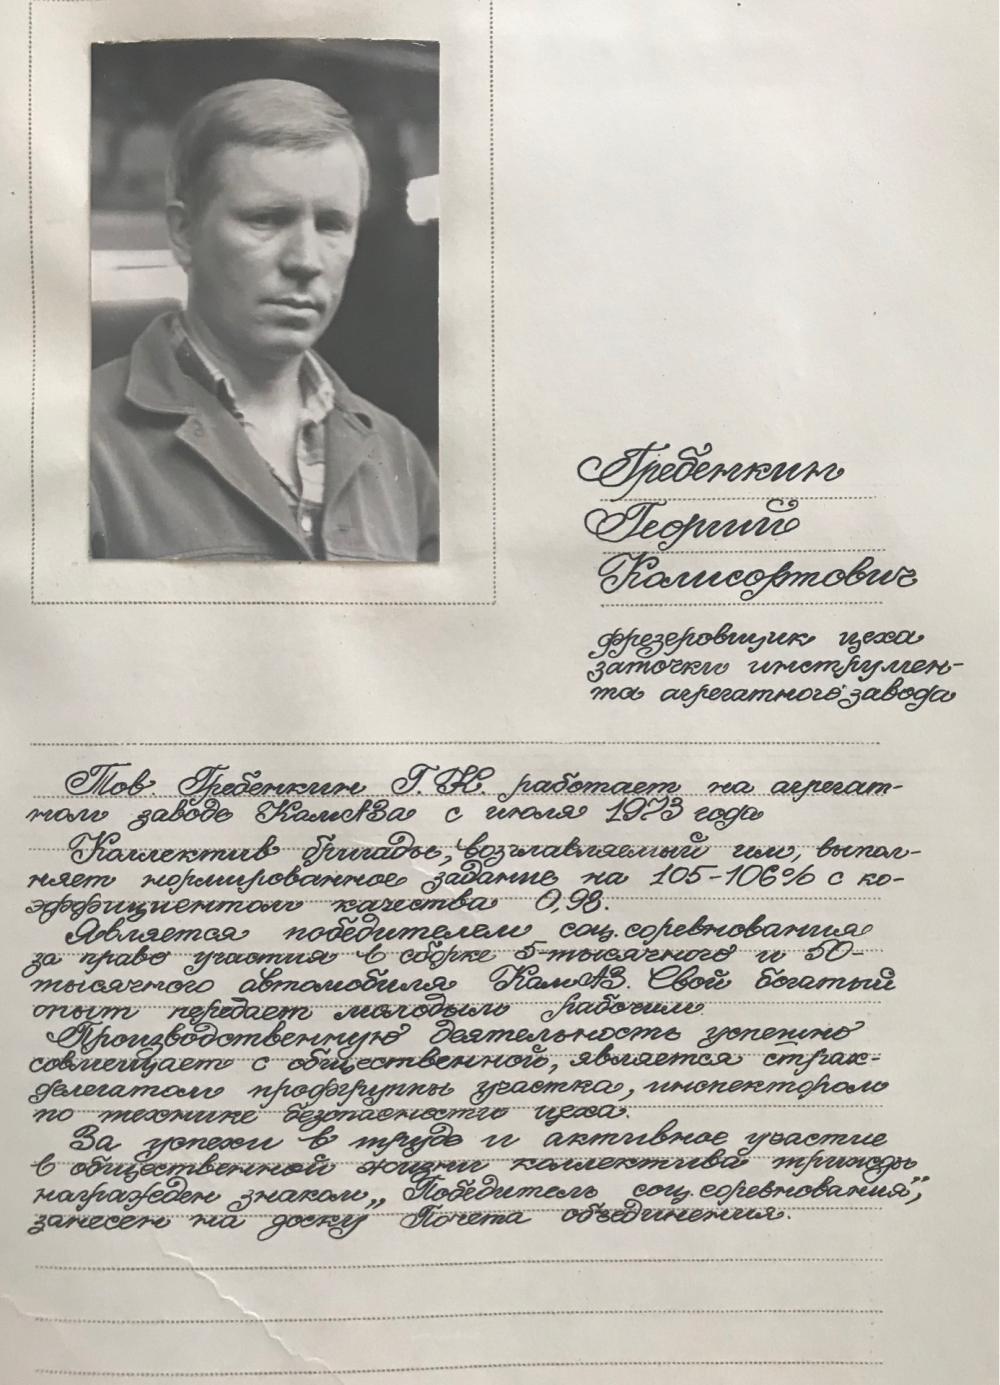 Гребенкин
Георгий
Калистратович
фрезеровщик цеха
заточки инструмен-
та агрегатного завода
Тов. Гребенкин Г. К. работает на агрегат-
ном заводе КамАЗа с июля 1973 года
Коллектив бригады, возглавляемый им, выпол-
няет нормированное задание на 105-106% с ко-
эффициентом качества 0,98.
Является победителем соц. соревнования
за право участия в сборке 5-тысячного и 50-
тысячного автомобиля КамАЗ. Свой богатый
опыт передает молодым рабочим.
Производственную деятельность успешно
совмещает с общественной, является страх-
делегатом профгруппы участка, инспектором
по технике безопасности цеха.
За успехи в труде и активное участие
в общественной жизни коллектива трижды
награжден знаком „Победитель соц. соревнования",
занесен на доску Почета объединения.